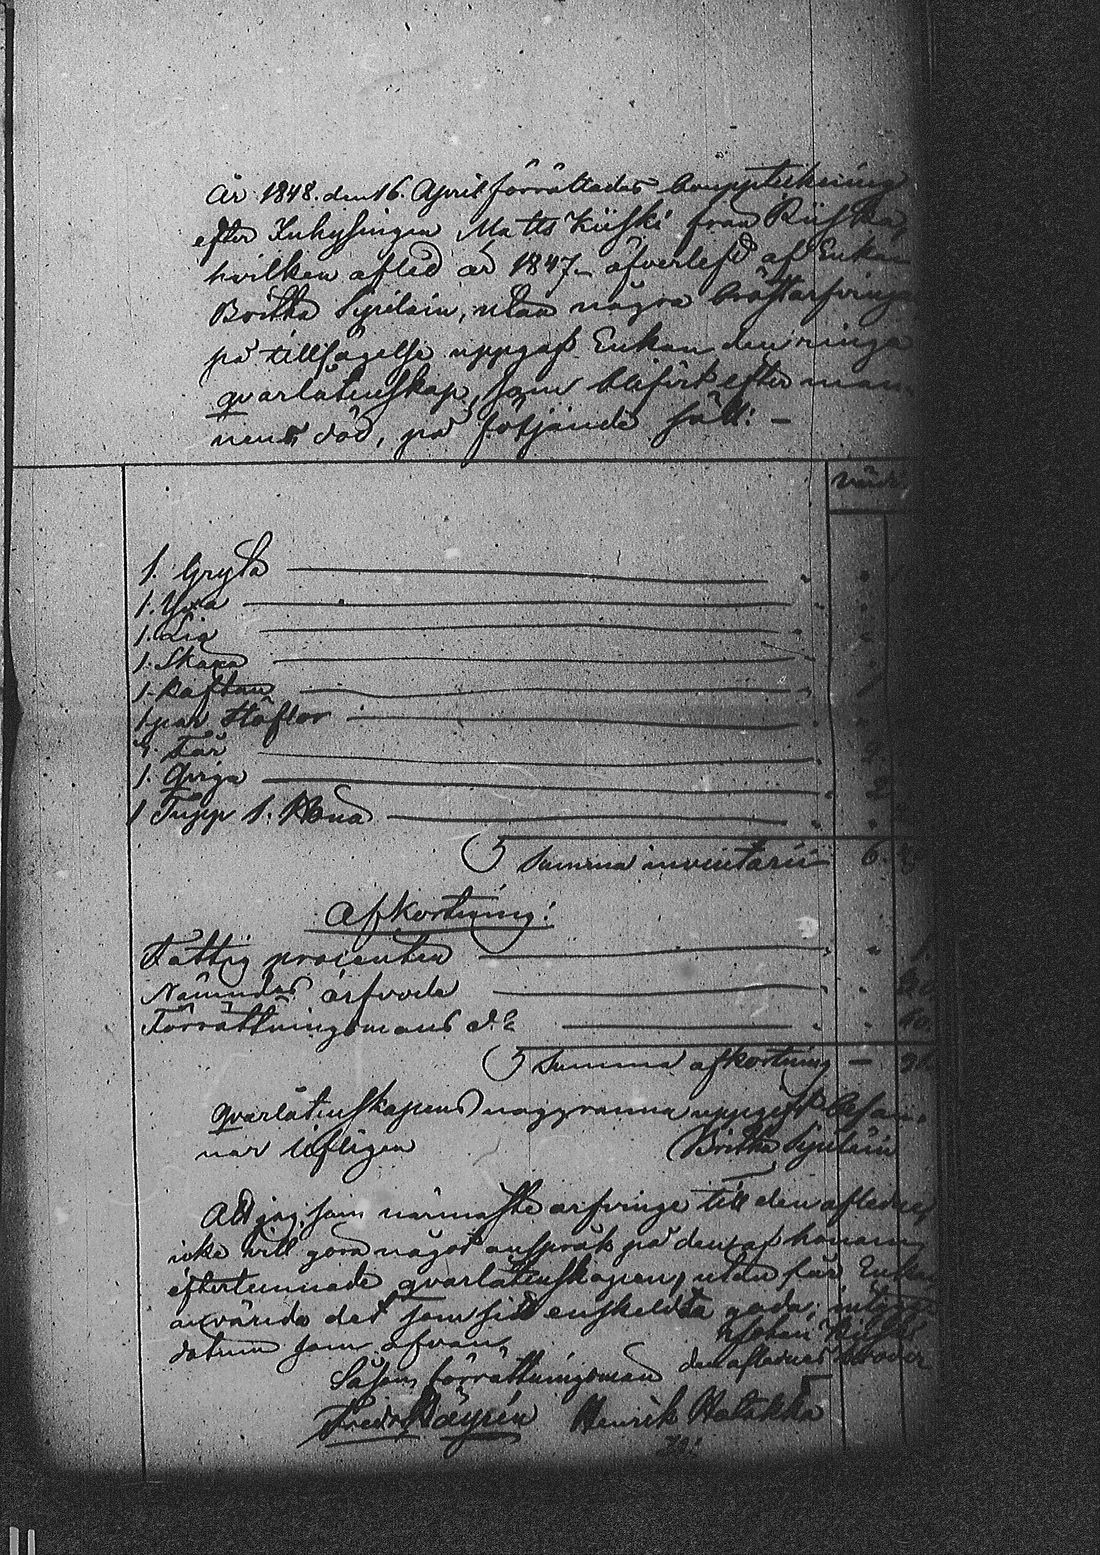 År 1848. den 16. April förrättades Bouppteckning
efter Inhysingen Matts Kiiski från Kiiskilä,
hvilken afled år 1847. öfverlefd af Enkan
Britha Sipiläin, utan några Bröstarfvingar
på tillsägelse uppgaf Enkan den ringa
qvarlåtenskap, som blifvit efter man-
nens död, på följande sätt: —
värde
1. Gryta
1. Yxa
1. Lia
1. Skära
1. Kaftan
1 par Stöflor
4. Får
1. Qviga 2
1 Tupp 1. Höna
Summa inventarii 6.
Afkortning:
Fattig procenten 1.
Nämndes arfvode
Förrättningsmans d:o 40.
Summa afkortning —
Qvarlåtenskapens noggranna uppgift besan-
nar lifligen Britha Sipiläin
Att jag, som närmaste arfvinge till den aflednes
icke vill göra något anspråk på den af honom
efterlemnade qvarlåtenskapen, utan får Enkan
använda det som sitt enskeldta goda; intygar
datum som ofvan, Johan Kiiski
den aflednes broder
Såsom förrättningsman
Fredr. Häyrén Henrik Hatakka